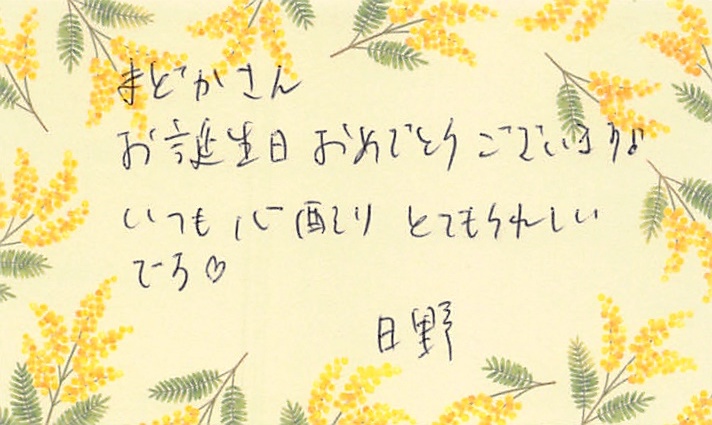 まどかさん
お誕生日 おめでとうございます
いつも 心配り とてもうれしい
です♡
日野